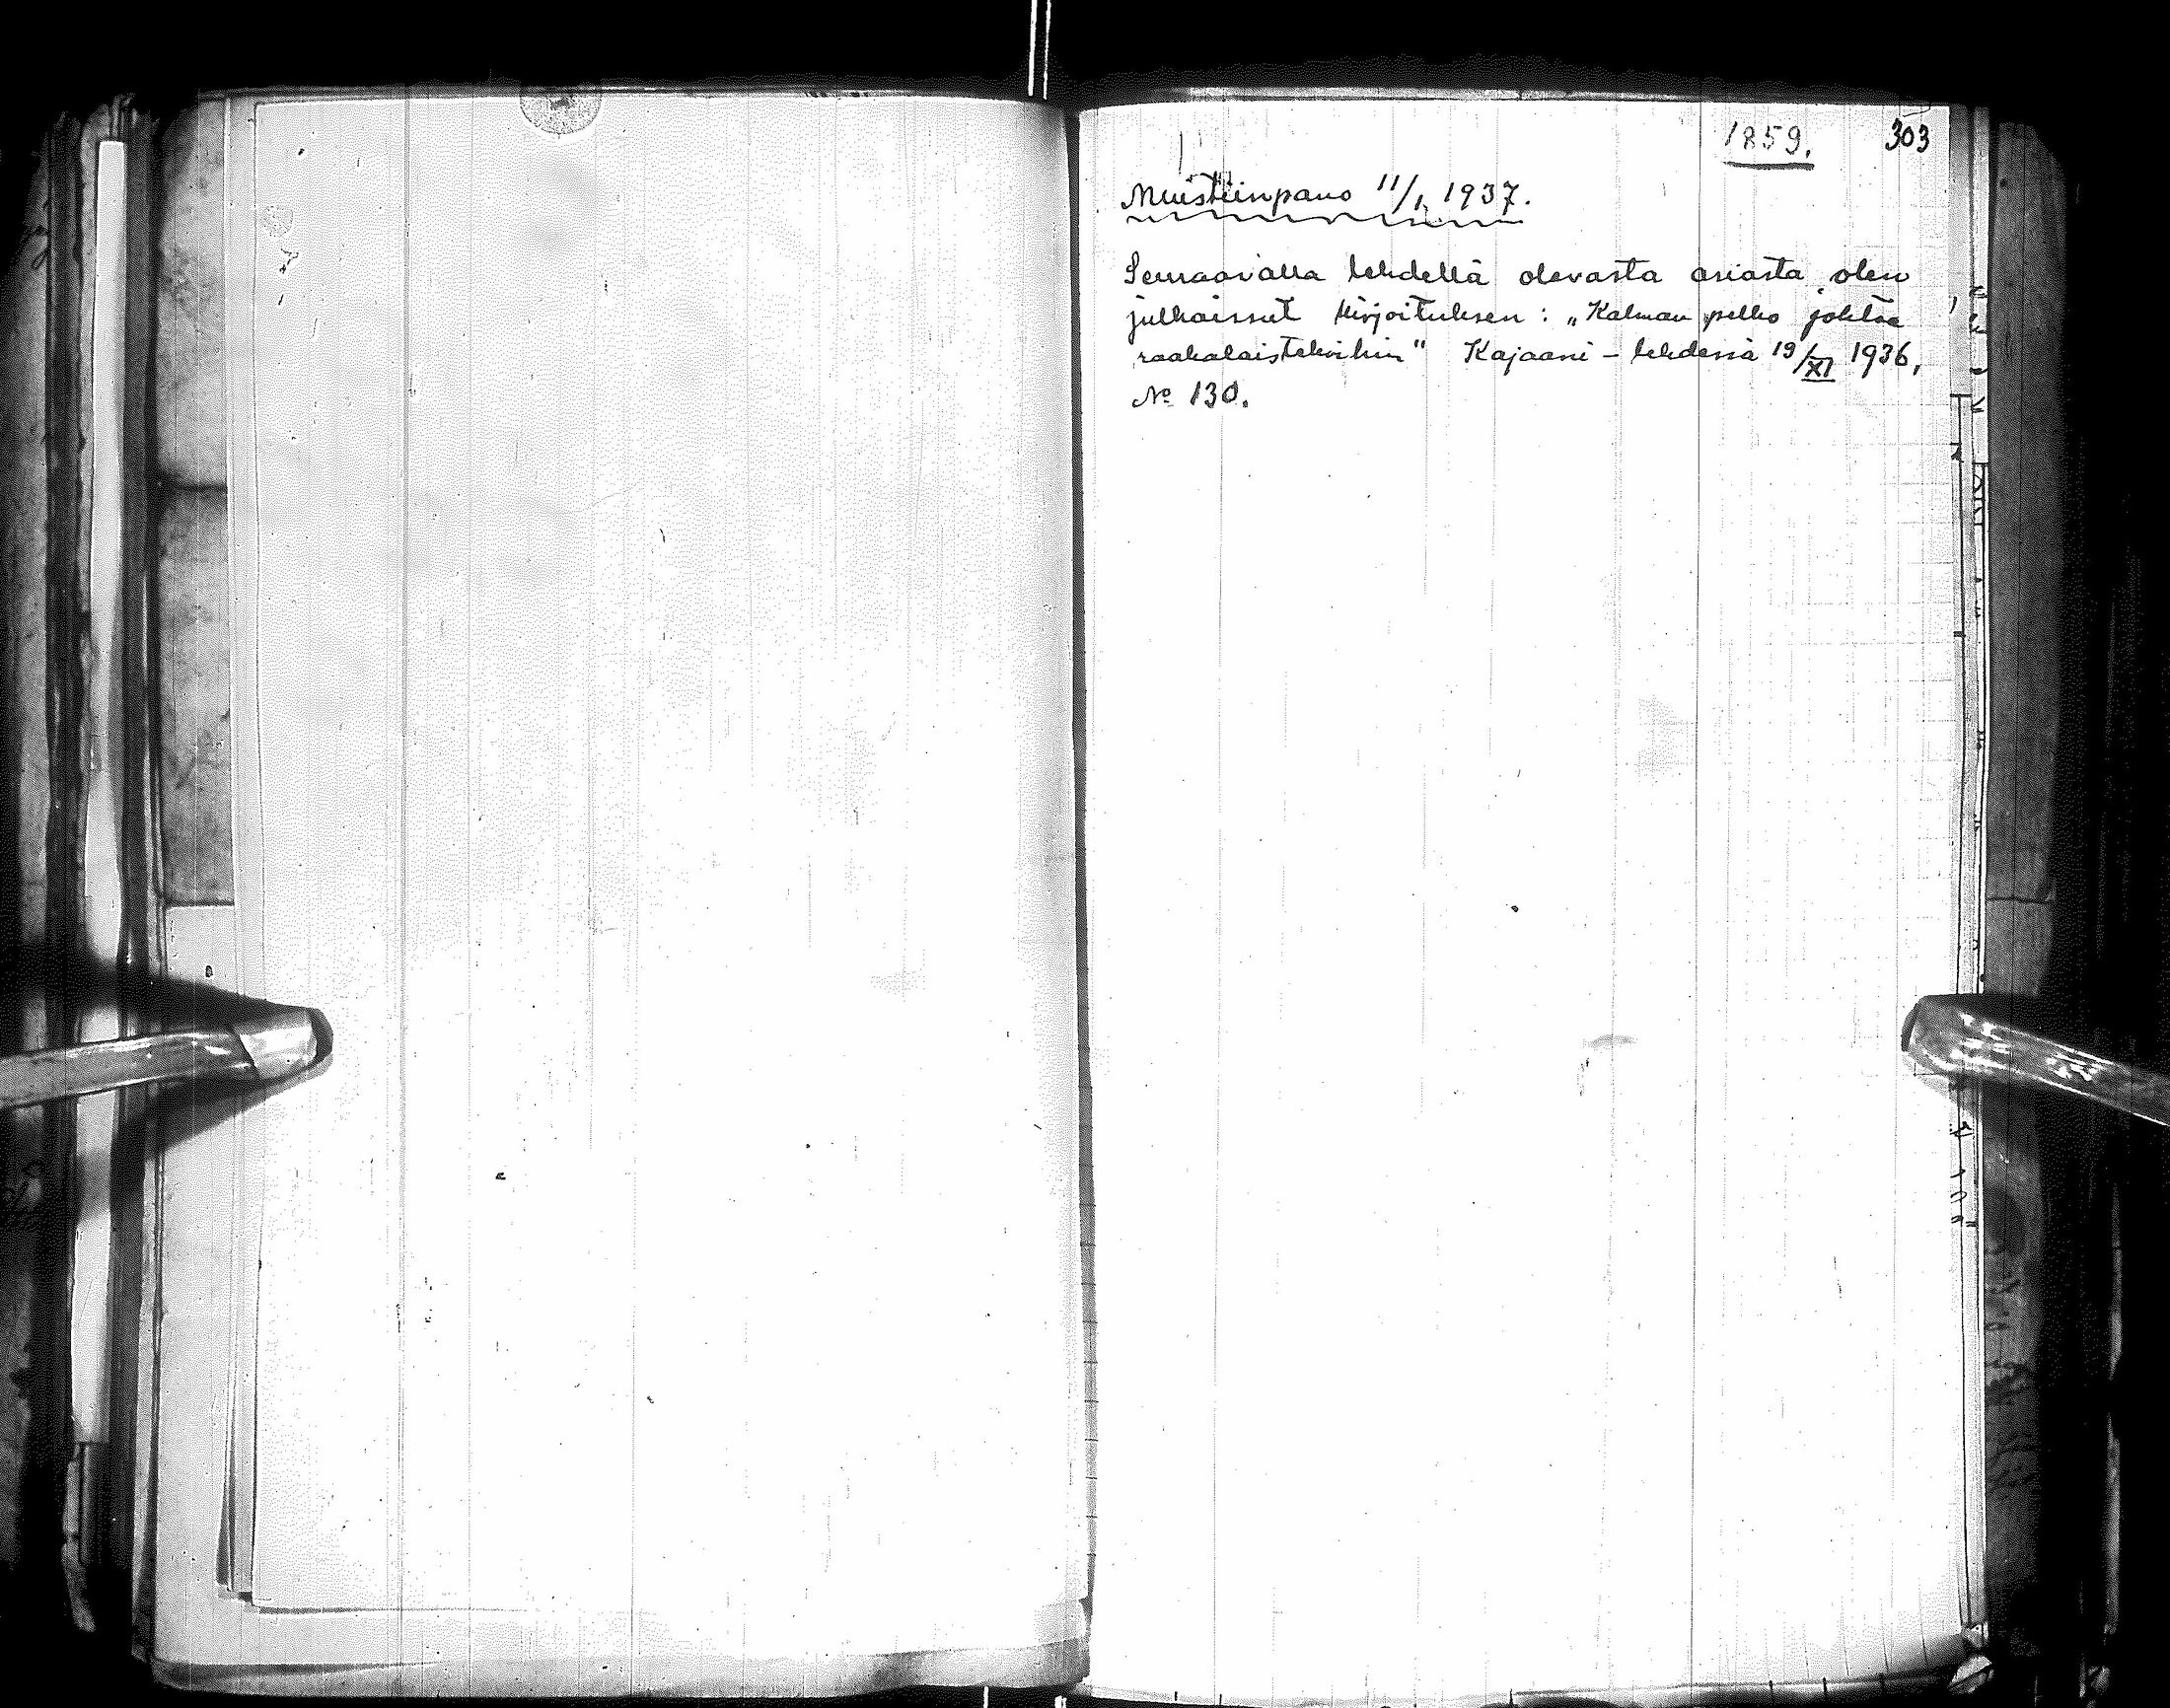 1859. 303
Muistiinpano 11/1 1937.
Seuraavalla lehdellä olevasta asiasta olen
julkaissut kirjoituksen: „Kalman pelko johtaa
raakalaistekoihin" Kajaani-lehdessä 19/XI 1936,
No 130.